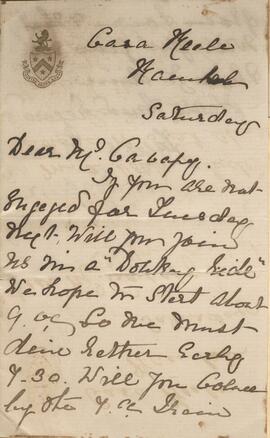 Casa
Saturday
Dear Mr. Cavafy.
If you are not
engaged for Tuesday
next. Will you join
us in a "Donkey Ride"
We hope to start about
9 oc/ So we must
dine rather early
7.30. Will you come
by the 7 oc train